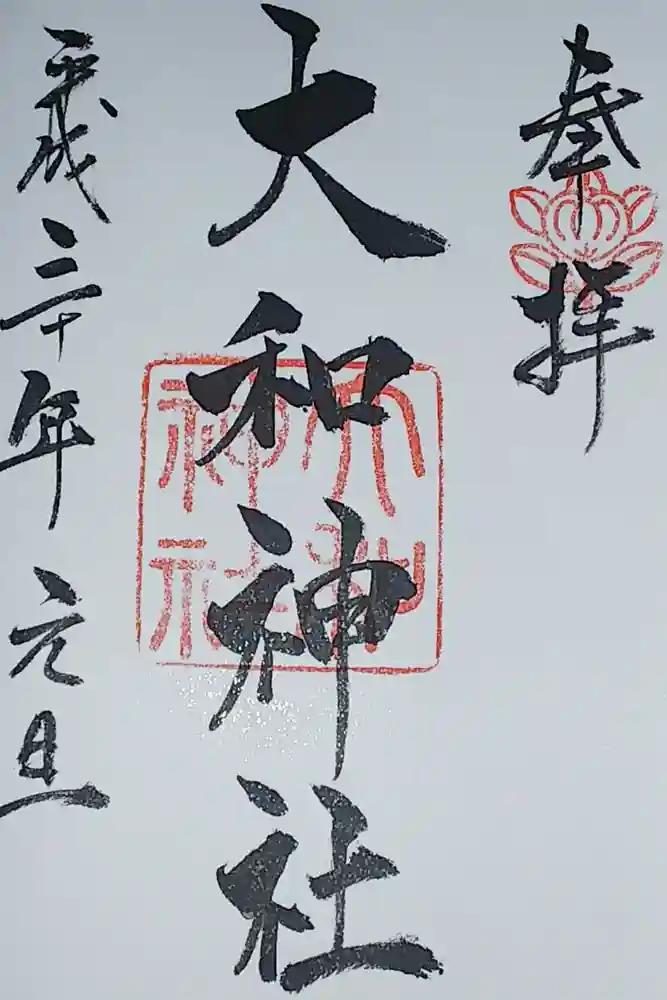 奉拝
大和神社
平成三十年元旦
大和神社